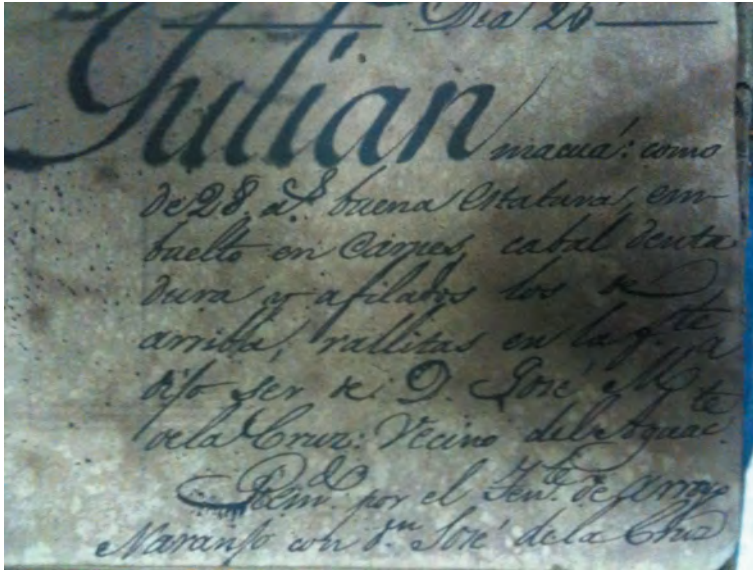 Dia 20
Julian macuá: como
de 28 a.s buena estatura, em-
buelto en carnes, cabal denta
dura y afilados los de
arriba, rallitas en la fte
dijo ser de D. José M.a
dela Cruz: Vecino del Aguacte
Remdo por el Tente de Arroyo
Naranjo con dn José de la Cruz